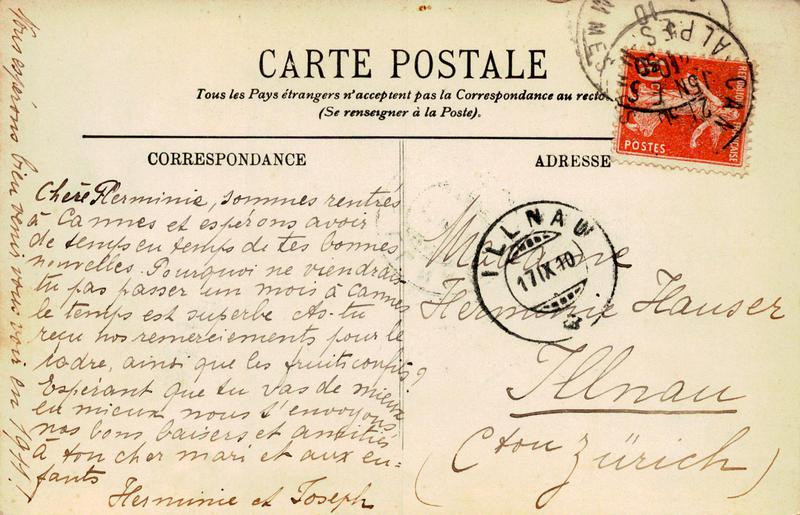 CARTE POSTALE
Tous les Pays étrangers n'acceptent pas la Correspondance au recto
(Se renseigner à la Poste).
CORRESPONDANCE
Chère Herminie, sommes rentrés
à Cannes et espérons avoir
de temps en temps de tes bonnes
nouvelles. Pourquoi ne viendrais
tu pas passer un mois à Cannes
le temps est superbe As-tu
reçu nos remerciements pour le
cadre, ainsi que les fruits confits?
Espérant que tu vas de mieux
en mieux nous t'envoyons
nos bons baisers et amitiés
à ton cher mari et aux en-
fants
Herminie et Joseph
Nous espérons bien venir vous voir en 1911!
ADRESSE
Madame
Herminie Hauser
Illnau
(Cton Zürich)
ILLNAW
17 IX 10
POSTES
10
CAN
ALPES